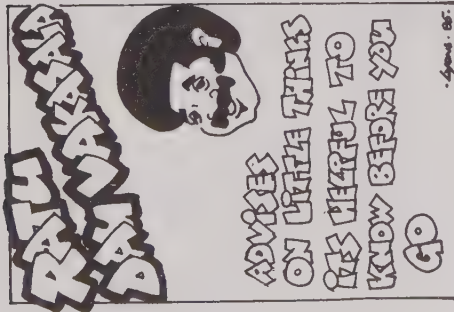 RATU
DAU VAKASALA
ADVISES
ON LITTLE THINGS
IT'S HELPFUL TO
KNOW BEFORE YOU
GO
85